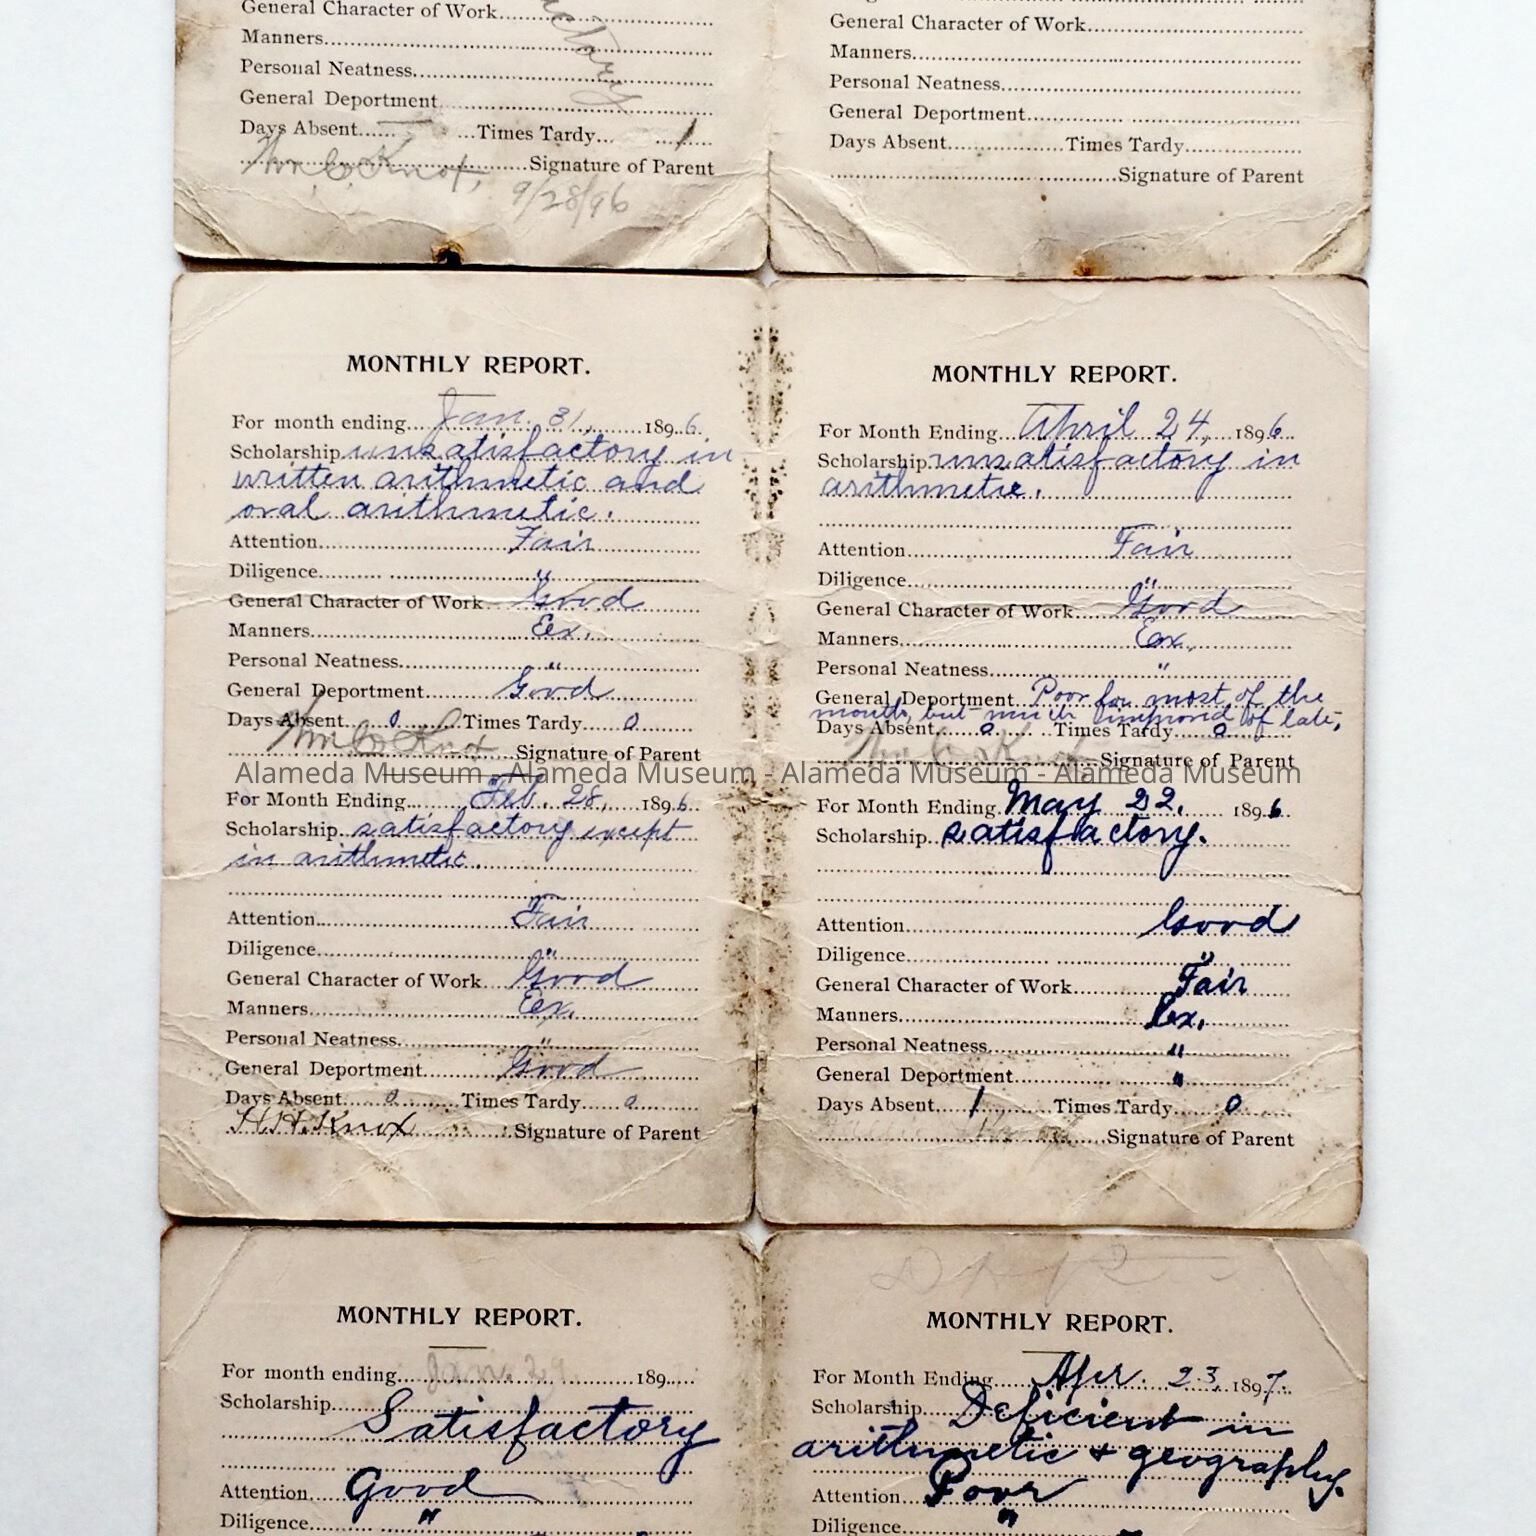 General Character of Work
Manners
Personal Neatness
General Deportment
Days Absent Times Tardy 1
Wm. C. Knox, Signature of Parent
9/28/96
General Character of Work
Manners
Personal Neatness
General Deportment
Days Absent Times Tardy
Signature of Parent
MONTHLY REPORT.
For month ending Jan. 31, 1896.
Scholarship unsatisfactory in
written arithmetic and
oral arithmetic.
Attention Fair
Diligence "
General Character of Work Good
Manners Ex.
Personal Neatness "
General Deportment Good
Days Absent 0 Times Tardy 0
Wm C. Knox Signature of Parent
For Month Ending Feb. 28, 1896.
Scholarship satisfactory except
in arithmetic.
Attention Fair
Diligence "
General Character of Work Good
Manners Ex.
Personal Neatness "
General Deportment Good
Days Absent 0 Times Tardy 0
H.H. Knox Signature of Parent
MONTHLY REPORT.
For Month Ending April 24, 1896
Scholarship unsatisfactory in
arithmetic.
Attention Fair
Diligence "
General Character of Work Good
Manners Ex.
Personal Neatness "
General Deportment Poor for most of the
month, but much improved of late,
Days Absent 0 Times Tardy 0
Wm C. Knox Signature of Parent
Alameda Museum - Alameda Museum - Alameda Museum - Alameda Museum
For Month Ending May 22, 1896
Scholarship satisfactory.
Attention Good
Diligence "
General Character of Work Fair
Manners Ex.
Personal Neatness "
General Deportment "
Days Absent 1 Times Tardy 0
Knox Signature of Parent
MONTHLY REPORT.
For month ending Jan. 29 189
Scholarship
Satisfactory
Attention Good
Diligence "
MONTHLY REPORT.
For Month Ending Apr. 23, 1897.
Scholarship Deficient in
arithmetic + geography.
Attention Poor
Diligence "